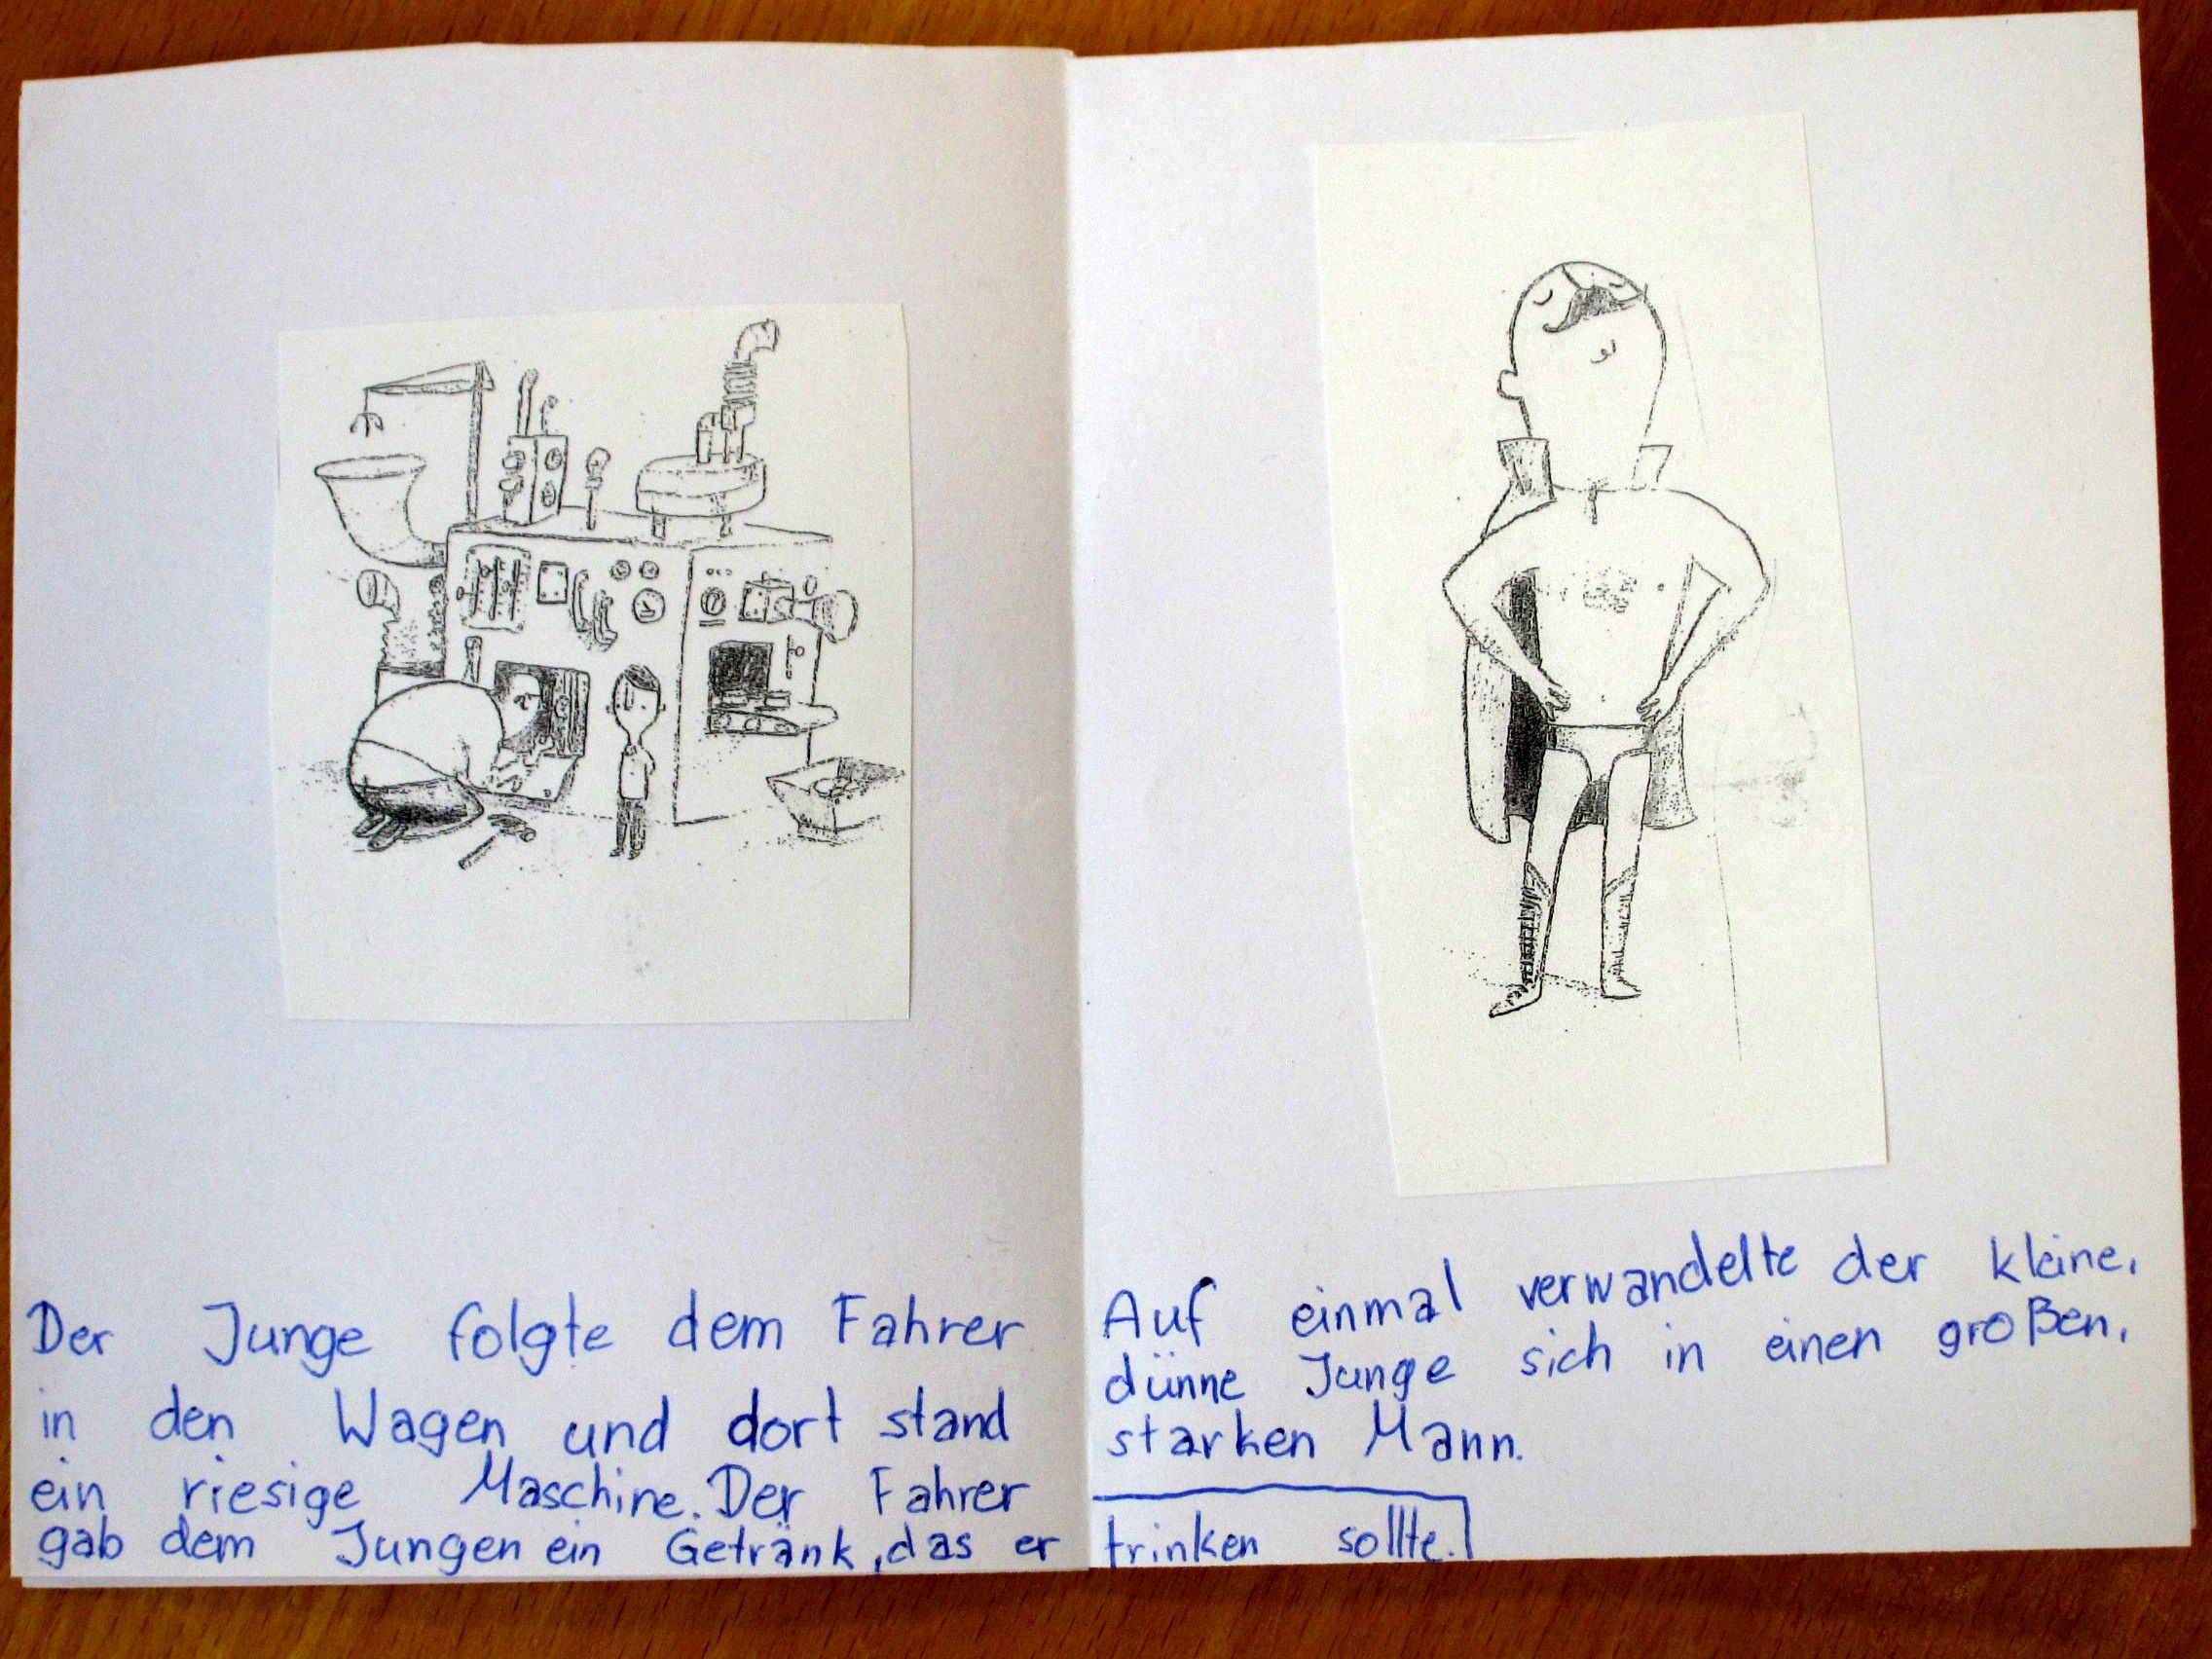 Der Junge folgte dem Fahrer
in den Wagen und dort stand
ein riesige Maschine. Der Fahrer
gab dem Jungen ein Getränk, das er
trinken sollte.
Auf einmal verwandelte der kleine,
dünne Junge sich in einen großen,
starken Mann.